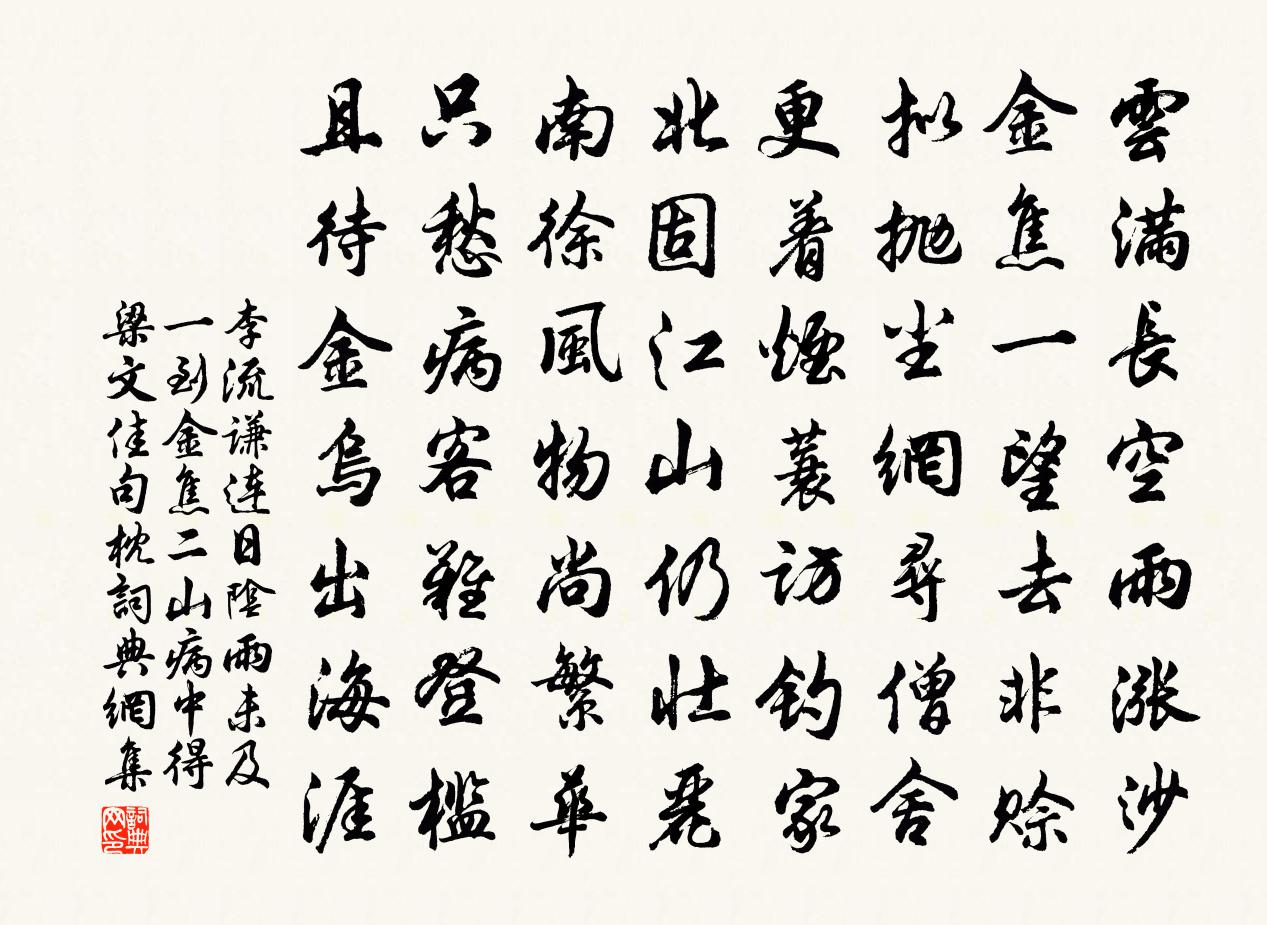 雲滿長空雨漲沙
金焦一望去非賒
拟抛尘網尋僧舍
更着煙蓑訪釣家
北固江山仍壮麗
南徐風物尚繁華
只愁病客難登檻
且待金烏出海涯
李流謙連日陰雨未及
一到金焦二山病中得
梁文佳句枕詞典網集
詞典網印